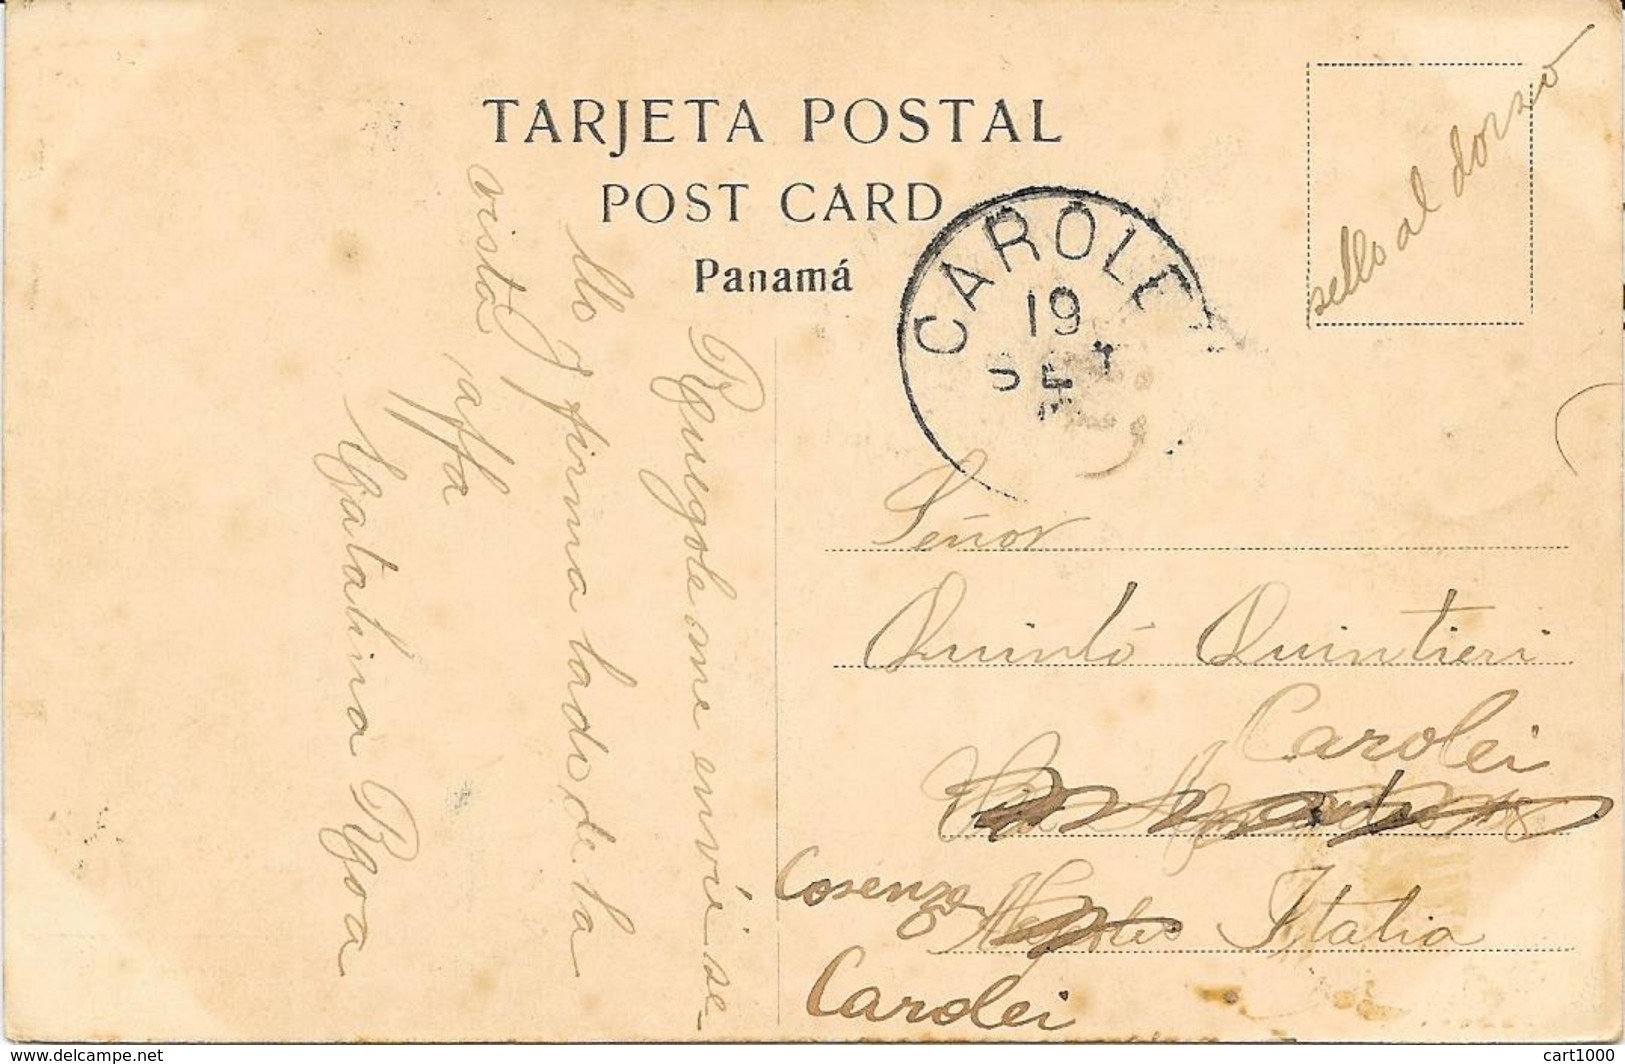 TARJETA POSTAL
POST CARD
Panamá
sello al dorso
CAROLE
19
SET
Rguegole me envié se-
llo y firma lado de la
vista
affa
Catalina Rgoa
Señor
Quinto Quintieri
Carolei
Cosenza
Napoles Italia
Carolei
www.delcampe.net
cart1000